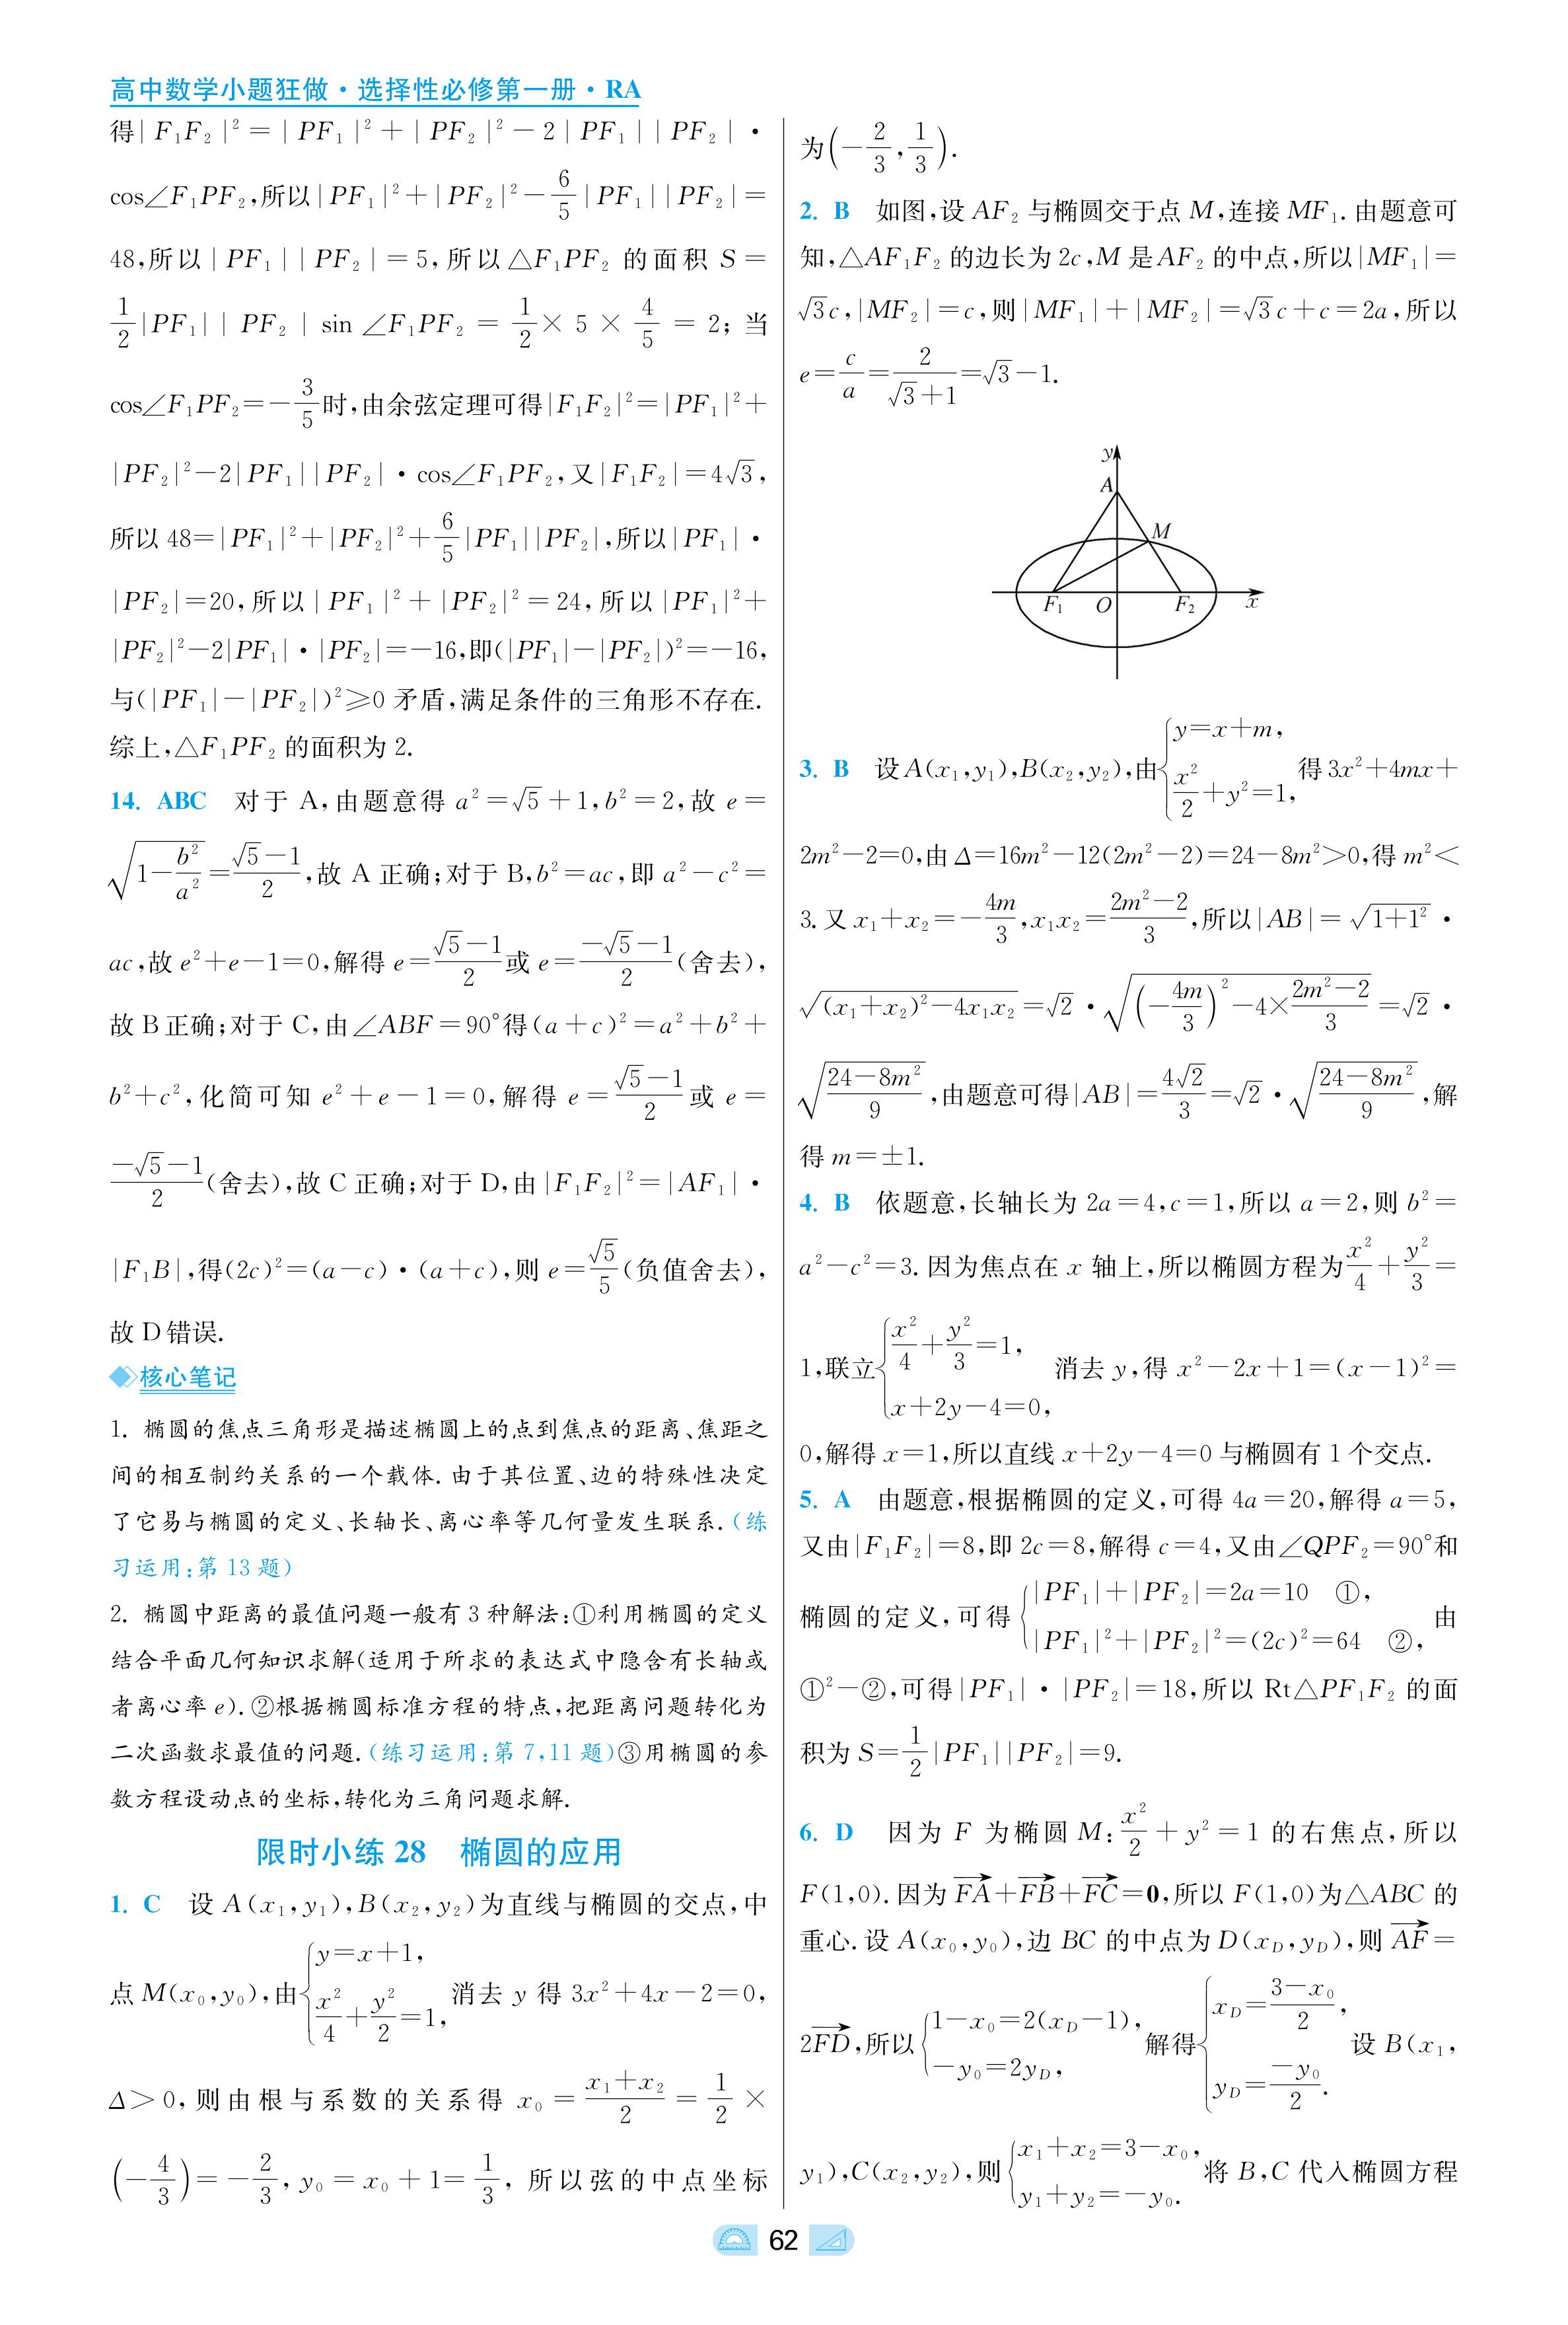 高中数学小题狂做·选择性必修第一册·RA
得|F₁F₂|²=|PF₁|²+|PF₂|²-2|PF₁||PF₂|·
cos∠F₁PF₂,所以|PF₁|²+|PF₂|²-6/5|PF₁||PF₂|=
48,所以|PF₁||PF₂|=5,所以△F₁PF₂的面积S=
1/2|PF₁||PF₂|sin∠F₁PF₂=1/2×5×4/5=2;当
cos∠F₁PF₂=-3/5时,由余弦定理可得|F₁F₂|²=|PF₁|²+
|PF₂|²-2|PF₁||PF₂|·cos∠F₁PF₂,又|F₁F₂|=4√3,
所以48=|PF₁|²+|PF₂|²+6/5|PF₁||PF₂|,所以|PF₁|·
|PF₂|=20,所以|PF₁|²+|PF₂|²=24,所以|PF₁|²+
|PF₂|²-2|PF₁|·|PF₂|=-16,即(|PF₁|-|PF₂|)²=-16,
与(|PF₁|-|PF₂|)²≥0矛盾,满足条件的三角形不存在.
综上,△F₁PF₂的面积为2.
14. ABC 对于A,由题意得a²=√5+1,b²=2,故e=
√(1-b²/a²)=(√5-1)/2,故A正确;对于B,b²=ac,即a²-c²=
ac,故e²+e-1=0,解得e=(√5-1)/2或e=(-√5-1)/2(舍去),
故B正确;对于C,由∠ABF=90°得(a+c)²=a²+b²+
b²+c²,化简可知e²+e-1=0,解得e=(√5-1)/2或e=
(-√5-1)/2(舍去),故C正确;对于D,由|F₁F₂|²=|AF₁|·
|F₁B|,得(2c)²=(a-c)·(a+c),则e=√5/5(负值舍去),
故D错误.
核心笔记
1. 椭圆的焦点三角形是描述椭圆上的点到焦点的距离、焦距之
间的相互制约关系的一个载体.由于其位置、边的特殊性决定
了它易与椭圆的定义、长轴长、离心率等几何量发生联系.(练
习运用:第13题)
2. 椭圆中距离的最值问题一般有3种解法:①利用椭圆的定义
结合平面几何知识求解(适用于所求的表达式中隐含有长轴或
者离心率e).②根据椭圆标准方程的特点,把距离问题转化为
二次函数求最值的问题.(练习运用:第7,11题)③用椭圆的参
数方程设动点的坐标,转化为三角问题求解.
限时小练28 椭圆的应用
1. C 设A(x₁,y₁),B(x₂,y₂)为直线与椭圆的交点,中
点M(x₀,y₀),由{y=x+1, x²/4+y²/2=1, 消去y得3x²+4x-2=0,
Δ>0,则由根与系数的关系得x₀=(x₁+x₂)/2=1/2×
(-4/3)=-2/3,y₀=x₀+1=1/3,所以弦的中点坐标
为(-2/3,1/3).
2. B 如图,设AF₂与椭圆交于点M,连接MF₁.由题意可
知,△AF₁F₂的边长为2c,M是AF₂的中点,所以|MF₁|=
√3c,|MF₂|=c,则|MF₁|+|MF₂|=√3c+c=2a,所以
e=c/a=2/(√3+1)=√3-1.
y
A
M
F₁ O F₂ x
3. B 设A(x₁,y₁),B(x₂,y₂),由{y=x+m, x²/2+y²=1, 得3x²+4mx+
2m²-2=0,由Δ=16m²-12(2m²-2)=24-8m²>0,得m²<
3.又x₁+x₂=-4m/3,x₁x₂=(2m²-2)/3,所以|AB|=√(1+1²)·
√((x₁+x₂)²-4x₁x₂)=√2·√((-4m/3)²-4×(2m²-2)/3)=√2·
√((24-8m²)/9),由题意可得|AB|=4√2/3=√2·√((24-8m²)/9),解
得m=±1.
4. B 依题意,长轴长为2a=4,c=1,所以a=2,则b²=
a²-c²=3.因为焦点在x轴上,所以椭圆方程为x²/4+y²/3=
1,联立{x²/4+y²/3=1, x+2y-4=0, 消去y,得x²-2x+1=(x-1)²=
0,解得x=1,所以直线x+2y-4=0与椭圆有1个交点.
5. A 由题意,根据椭圆的定义,可得4a=20,解得a=5,
又由|F₁F₂|=8,即2c=8,解得c=4,又由∠QPF₂=90°和
椭圆的定义,可得{|PF₁|+|PF₂|=2a=10 ①, |PF₁|²+|PF₂|²=(2c)²=64 ②, 由
①²-②,可得|PF₁|·|PF₂|=18,所以Rt△PF₁F₂的面
积为S=1/2|PF₁||PF₂|=9.
6. D 因为F为椭圆M:x²/2+y²=1的右焦点,所以
F(1,0).因为→FA+→FB+→FC=0,所以F(1,0)为△ABC的
重心.设A(x₀,y₀),边BC的中点为D(x_D,y_D),则→AF=
2→FD,所以{1-x₀=2(x_D-1), -y₀=2y_D, 解得{x_D=(3-x₀)/2, y_D=-y₀/2. 设B(x₁,
y₁),C(x₂,y₂),则{x₁+x₂=3-x₀, y₁+y₂=-y₀. 将B,C代入椭圆方程
62